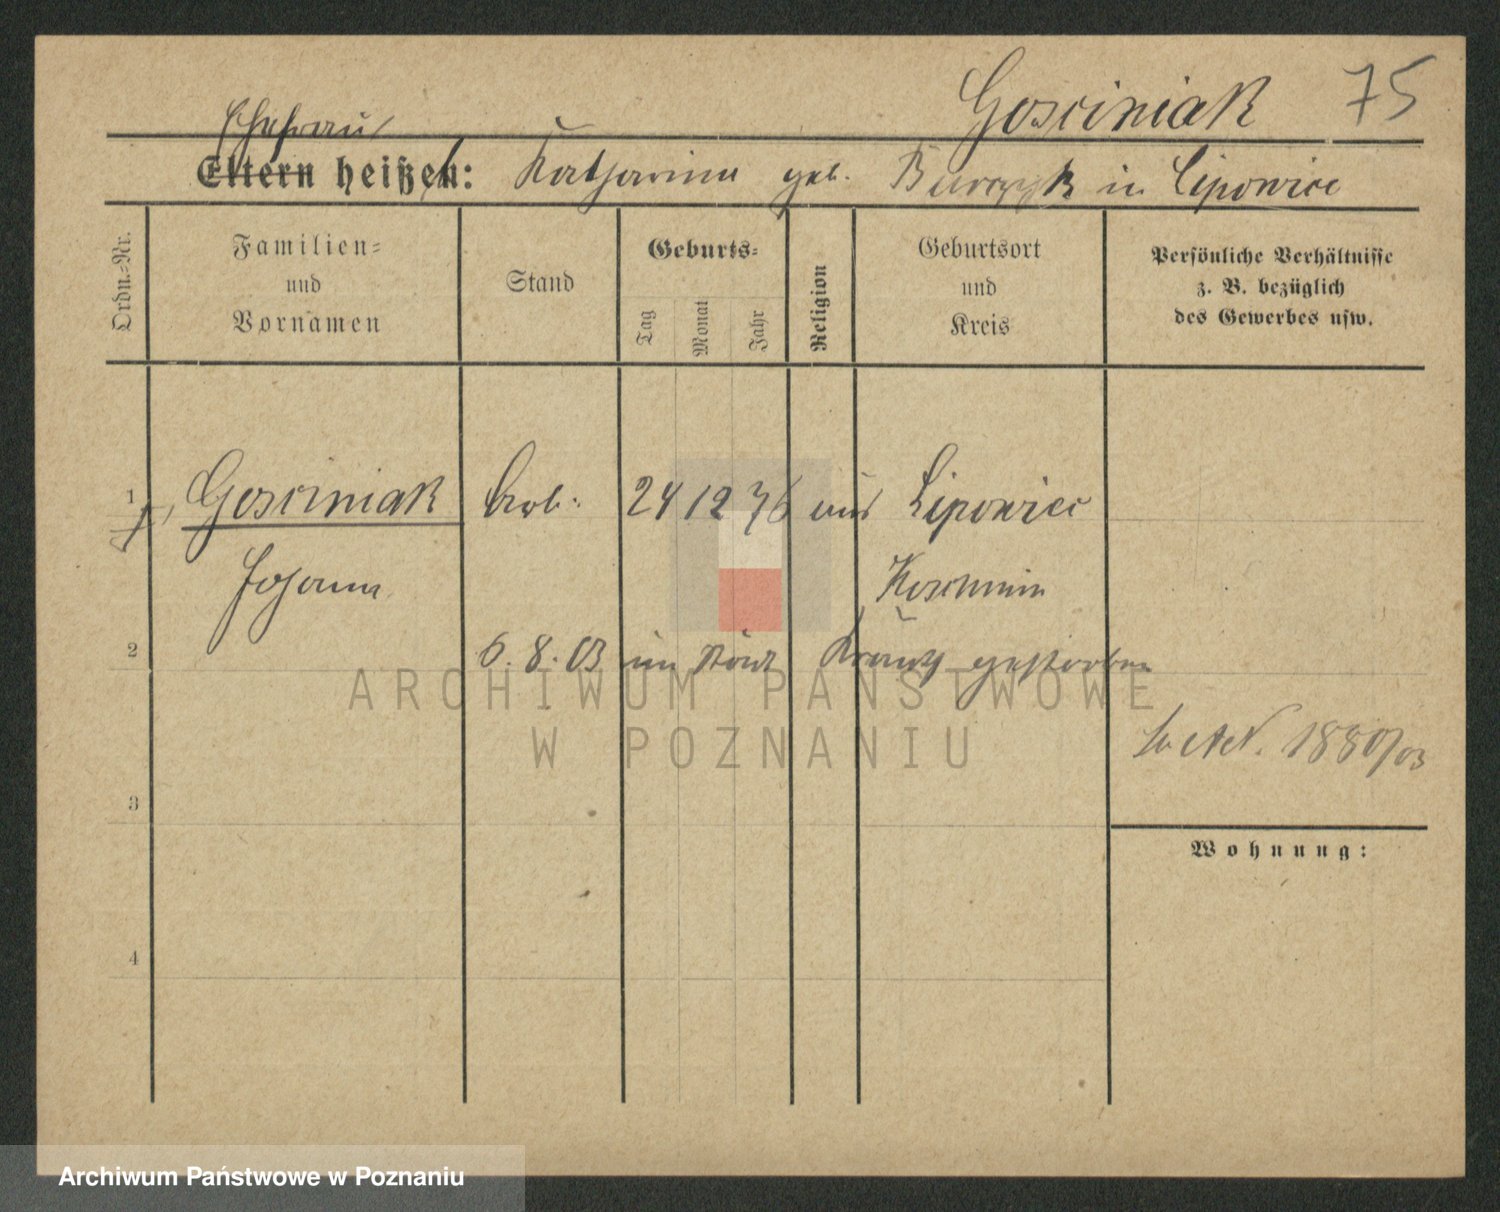 Gosciniak 75
Ehefrau
Eltern heißen: Katharina geb. Burczyk in Lipowiec
Ordn.-Nr.
Familien-
und
Vornamen
Stand
Geburts-
Tag
Monat
Jahr
Religion
Geburtsort
und
Kreis
Persönliche Verhältnisse
z. B. bezüglich
des Gewerbes usw.
1 Gosciniak Arb. 24 12 76 Lipowiec
Johann Koschmin
2 6. 8. 03 im städt Krankh gestorben
ARCHIWUM PAŃSTWOWE
W POZNANIU
1880/03
3
Wohnung:
4
Archiwum Państwowe w Poznaniu